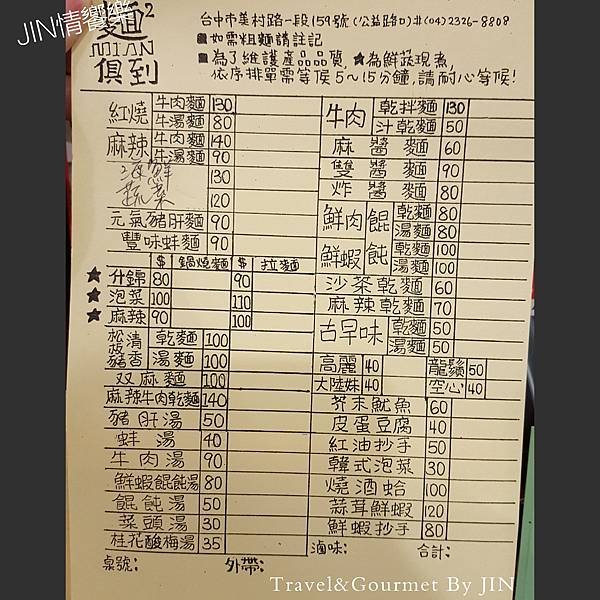 JIN情饗樂
麵²
MIAN
俱到
台中市美村路一段159號(公益路口)北(04)2326-8808
■如需粗麵請註記
■為了維護產品品質,★為鮮蔬現煮,
依序排單需等侯5~15分鐘,請耐心等候!
紅燒 牛肉麵 130
牛湯麵 80
麻辣 牛肉麵 140
牛湯麵 90
海鮮 130
蔬菜 120
元氣豬肝麵 90
豐味蚌麵 90
$ 鍋燒麵 $ 拉麵
★什錦 80 90
★泡菜 100 110
★麻辣 90 100
松清 乾麵 100
豬香 湯麵 100
双麻麵 100
麻辣牛肉乾麵 140
豬肝湯 50
蚌湯 40
牛肉湯 90
鮮蝦餛飩湯 80
餛飩湯 50
菜頭湯 30
桂花酸梅湯 35
桌號: 外帶:
牛肉 乾拌麵 130
汁乾麵 50
麻醬麵 60
雙醬麵 90
炸醬麵 80
鮮肉餛飩 乾麵 80
湯麵 80
鮮蝦餛飩 乾麵 100
湯麵 100
沙茶乾麵 60
麻辣乾麵 70
古早味 乾麵 50
湯麵 50
高麗 40 龍鬚 50
大陸妹 40 空心 40
芥末魷魚 60
皮蛋豆腐 40
紅油抄手 50
韓式泡菜 30
燒酒蛤 100
蒜茸鮮蝦 120
鮮蝦抄手 80
滷味: 合計:
Travel&Gourmet By JIN